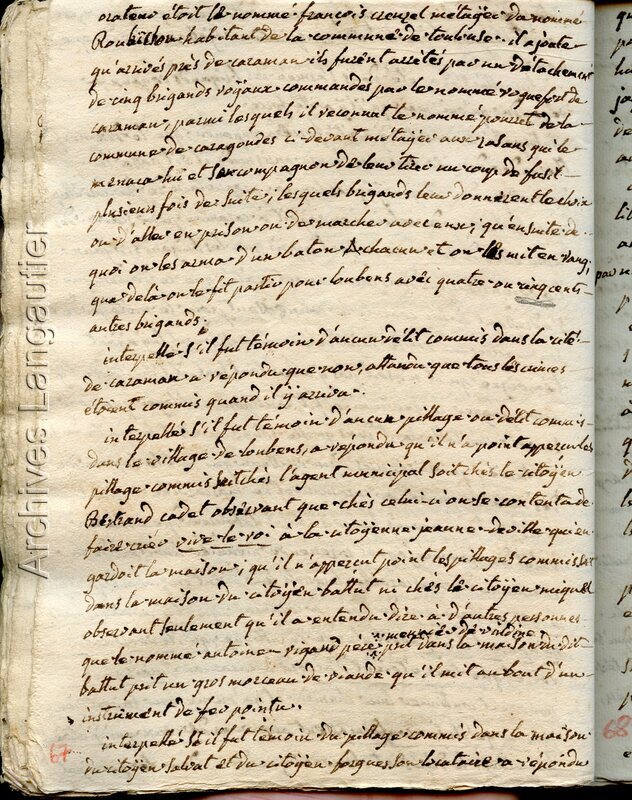 oratens étoit le nommé françois crouzel métayer du nommé
Roubisson habitant de la commune de toulouse. il ajoute
qu'arrivés près de caraman ils furent arretés par un détachement
de cinq brigands royaux commandés par le nommé roquefort de
caraman, parmi lesquels il reconnut le nommé pourret de la
commune de caragoudes ci-devant métayer aux rasans qui le
menaca lui et son compagnon de leur tirer un coup de fusil
plusieurs fois de suite; lesquels brigands leur donnèrent le choix
ou d'aller en prison ou de marcher avec eux; qu'ensuite de
quoi on les arma d'un baton chacun et on les mit en rang;
que delà on le fit partir pour loubens avec quatre ou cinq cents
autres brigands.
interpellé s'il fut témoin d'aucun délit commis dans la cité
de caraman a répondu que non, attandu que tous les crimes
étoient commis quand il y arriva.
interpellé s'il fut témoin d'aucun pillage ou délit commis
dans le village de loubens, a répondu qu'il n'a point apperçu les
pillage commis soit chès l'agent municipal soit chès le citoyen
Bertrand cadet observant que chès celui-ci on se contenta de
faire crier vive le roi à la citoyenne jeanne deville qui en
gardoit la maison; qu'il n'apperçut point les pillages commis
dans la maison du citoyen battut ni chès le citoyen miquel
observant seulement qu'il a entendu dire à d'autres personnes
que le nommé antoine rigaud père dans la maison du dit
battut prit un gros morceau de viande qu'il mit au bout d'un
instrument de fer pointu.
interpellé s'il fut témoin du pillage commis dans la maison
du citoyen salvat et du citoyen forgues son locataire a répondu
67
68
Archives Langautier